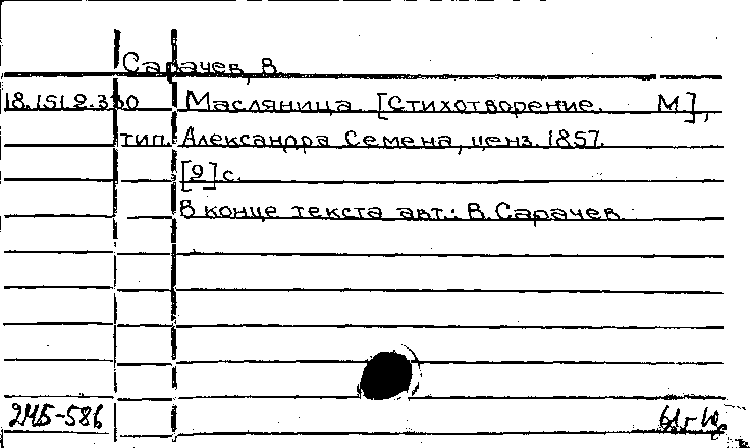 Сарачев, В.
18.151.2.330 Масляница. [Стихотворение. М.],
тип. Александра Семена, ценз. 1857.
[9] с.
В конце текста авт.: В. Сарачев.
2МБ-586